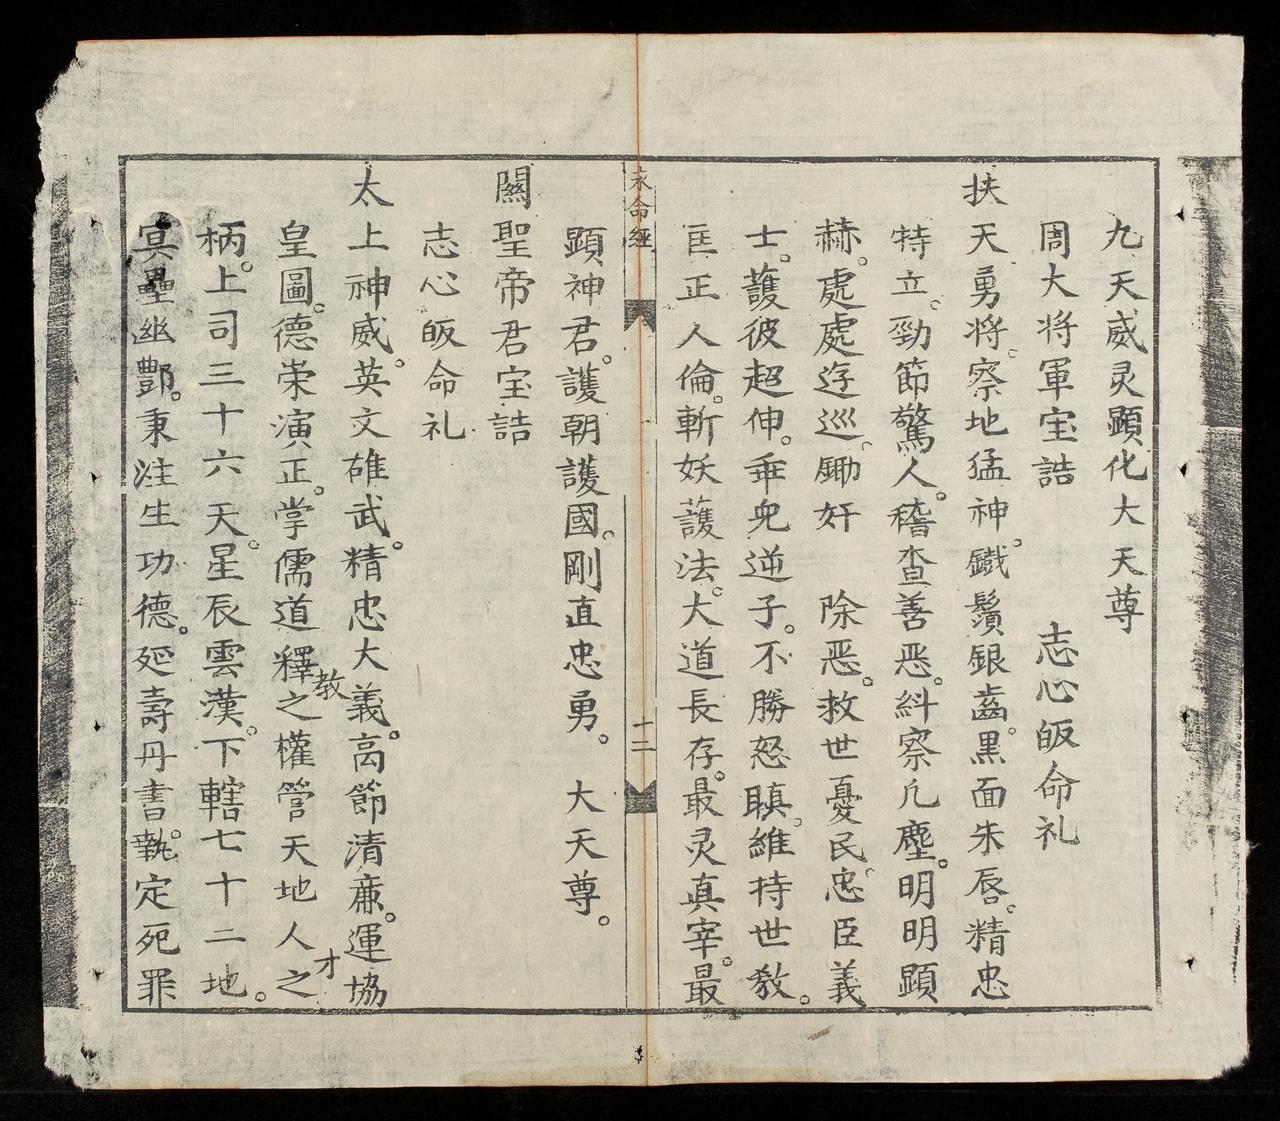 九天威灵顯化大天尊
周大將軍宝誥　志心皈命礼
扶天勇将。察地猛神。鐵鬚銀齒。黑面朱唇。精忠
特立。勁節驚人。稽查善恶。糾察凢塵。明明顕
赫。處處逰巡。鋤奸　除恶。救世憂民。忠臣義
士。護彼超伸。乖児逆子。不勝怒瞋。維持世教。
匡正人倫。斬妖護法。大道長存。最灵真宰。最
顕神君。護朝護國。剛直忠勇。大天尊。
關聖帝君宝誥
志心皈命礼
太上神威。英文雄武。精忠大義。高節清廉。運協
皇圖。德荣演正。掌儒道釋教之權管天地人才之
柄。上司三十六天。星辰雲漢。下轄七十二地。
冥壘幽酆。秉注生功德。延壽丹書。執定死罪
永命經
十二